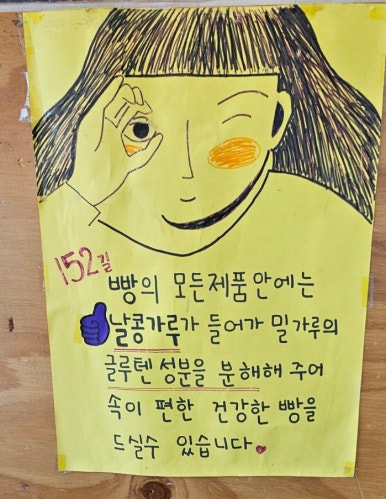 152길
빵의 모든제품안에는
날콩가루가 들어가 밀가루의
글루텐 성분을 분해해 주어
속이 편한 건강한 빵을
드실수 있습니다.